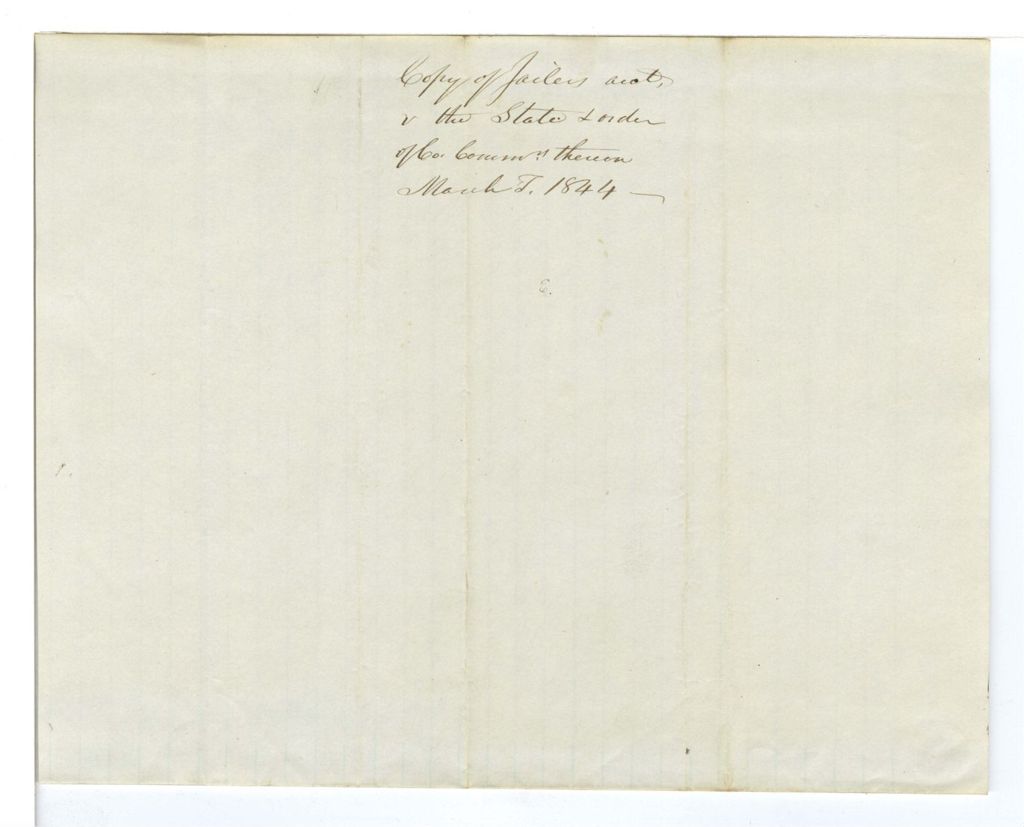 Copy of Jailers acct,
v the State & order
of Co. Commrs thereon
March T. 1844 —